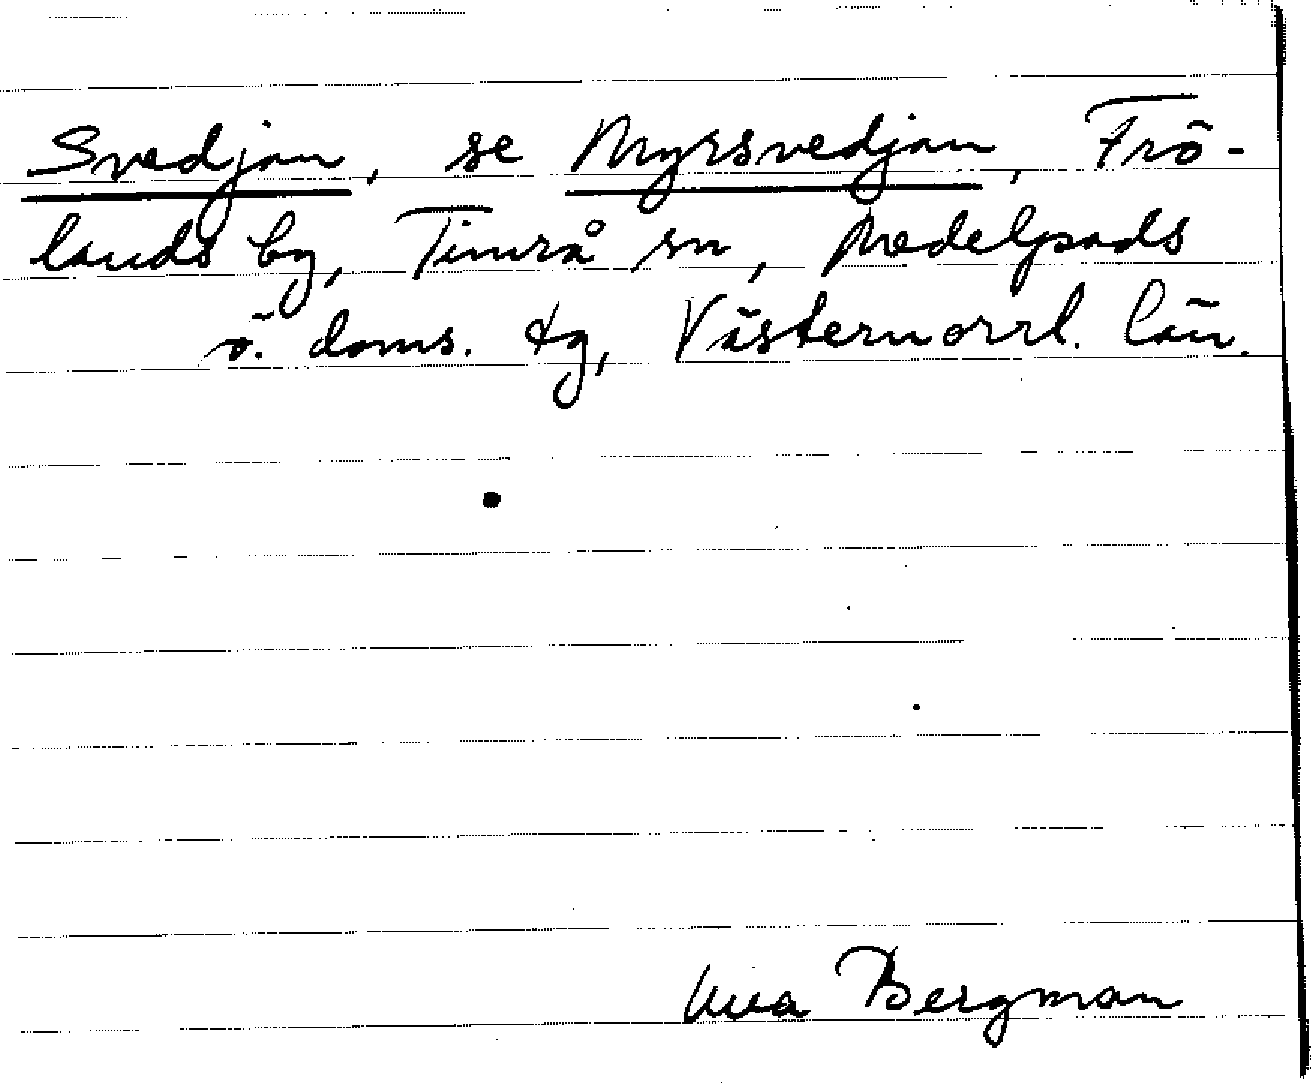 Svedjan, se Myrsvedjan, Frö-
lands by, Timrå sn, Medelpads
ö. doms. tg, Västernorrl. län.
Bergman